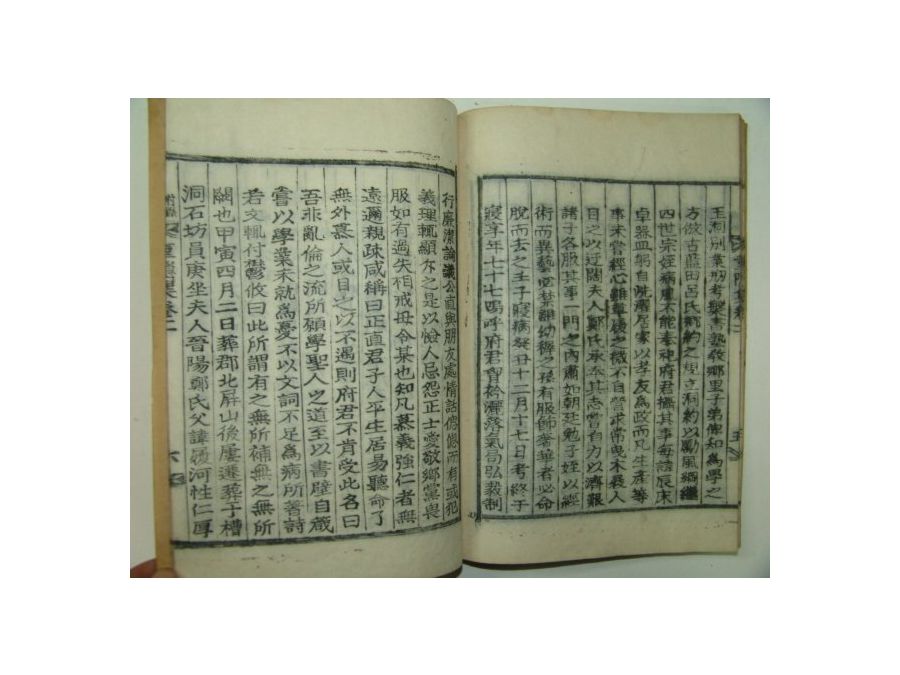 王洞別業刱考槃書塾教鄉里子弟俾知為學之
方倣古藍田呂氏鄉約之規立洞約以勵風綱繼
四世宗姪病廢不能奉神府君攝其事每諸辰床
卓器皿躬自洗滌居家以孝友為政而凡生產等
事未嘗經心雖簞瓢之微不自營求常曳木裘人
目之以迂闊夫人鄭氏承奉其志嘗自力以濟艱
諸子各服其事一門之內肅如朝廷勉子姪以經
術而異藝必禁雖幼穉之孫有服飾奢華者必命
脫而去之壬子寢病癸丑十二月十七日考終于
寢享年七十七嗚呼府君胷衿灑落氣局弘毅制
行廉潔論議公直與朋友處情話偲偲而有或犯
義理輒顯斥之是以憸人忌怨正士愛敬鄉黨畏
服如有過失相戒毋令某也知凡慕義強仁者無
遠邇親疎咸稱曰正直君子人平生居易聽命了
無外慕人或目之以不遇則府君不肯受此名曰
吾非亂倫之流所願學聖人之道至以書壁自箴
嘗以學業未就為憂不以文詞不足為病所著詩
若文輒付鬱攸曰此所謂有之無所補無之無所
闕也甲寅四月二日葬郡北屏山後屢遷葬于槽
洞石坊員庚坐夫人晉陽鄭氏父諱  河性仁厚
卷二
六